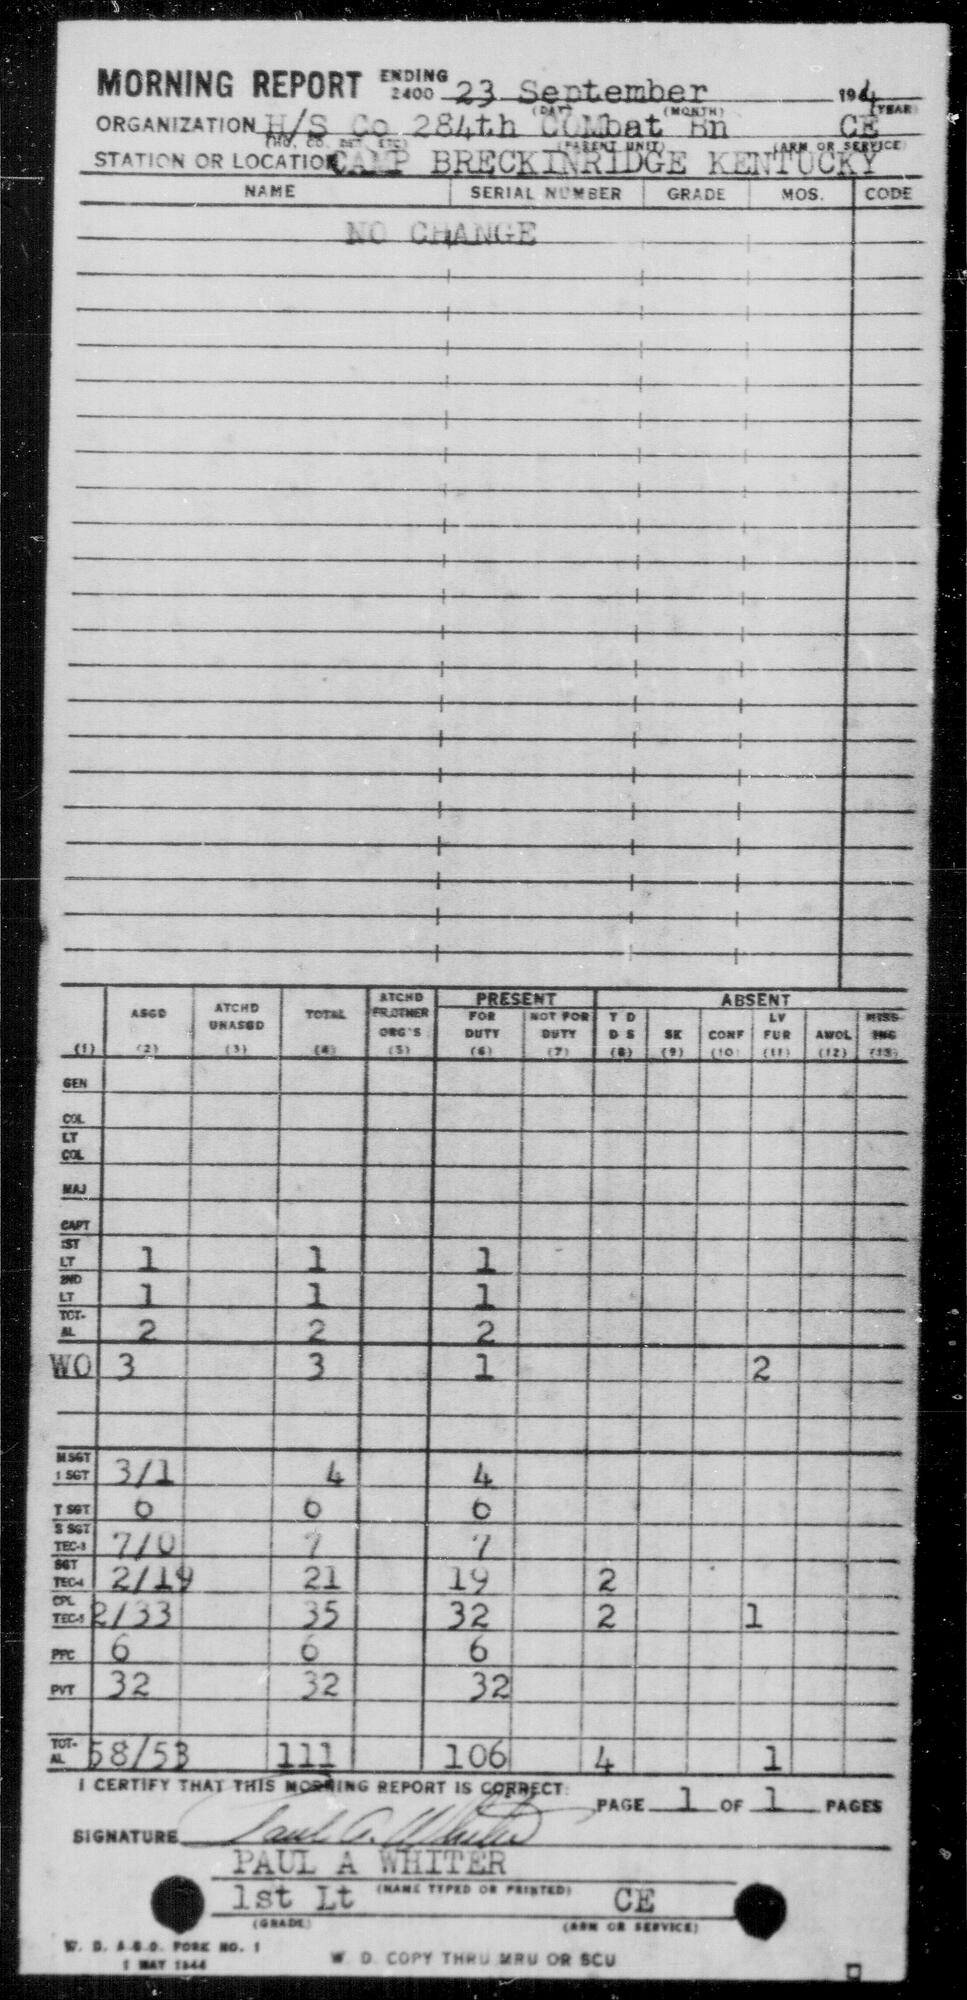 MORNING REPORT ENDING 2400 23 September 1944
(DAY) (MONTH) (YEAR)
ORGANIZATION H/S Co 284th COMbat Bn CE
(HQ, CO, DET, ETC) (PARENT UNIT) (ARM OR SERVICE)
STATION OR LOCATION CAMP BRECKINRIDGE KENTUCKY
NAME SERIAL NUMBER GRADE MOS. CODE
NO CHANGE
PRESENT ABSENT
ASGD ATCHD UNASGD TOTAL ATCHD FR OTHER ORG'S FOR DUTY NOT FOR DUTY T D D S SK CONF LV FUR AWOL MISS ING
(1) (2) (3) (4) (5) (6) (7) (8) (9) (10) (11) (12) (13)
GEN
COL
LT COL
MAJ
CAPT
1ST LT 1 1 1
2ND LT 1 1 1
TOT-AL 2 2 2
WO 3 3 1 2
M SGT 1 SGT 3/1 4 4
T SGT 6 6 6
S SGT TEC-3 7/0 7 7
SGT TEC-4 2/19 21 19 2
CPL TEC-5 2/33 35 32 2 1
PFC 6 6 6
PVT 32 32 32
TOT-AL 58/53 111 106 4 1
I CERTIFY THAT THIS MORNING REPORT IS CORRECT:
PAGE 1 OF 1 PAGES
SIGNATURE Paul A. Whiter
PAUL A WHITER
(NAME TYPED OR PRINTED)
1st Lt CE
(GRADE) (ARM OR SERVICE)
W. D. A.G.O. FORM NO. 1
1 MAY 1944
W. D. COPY THRU MRU OR SCU